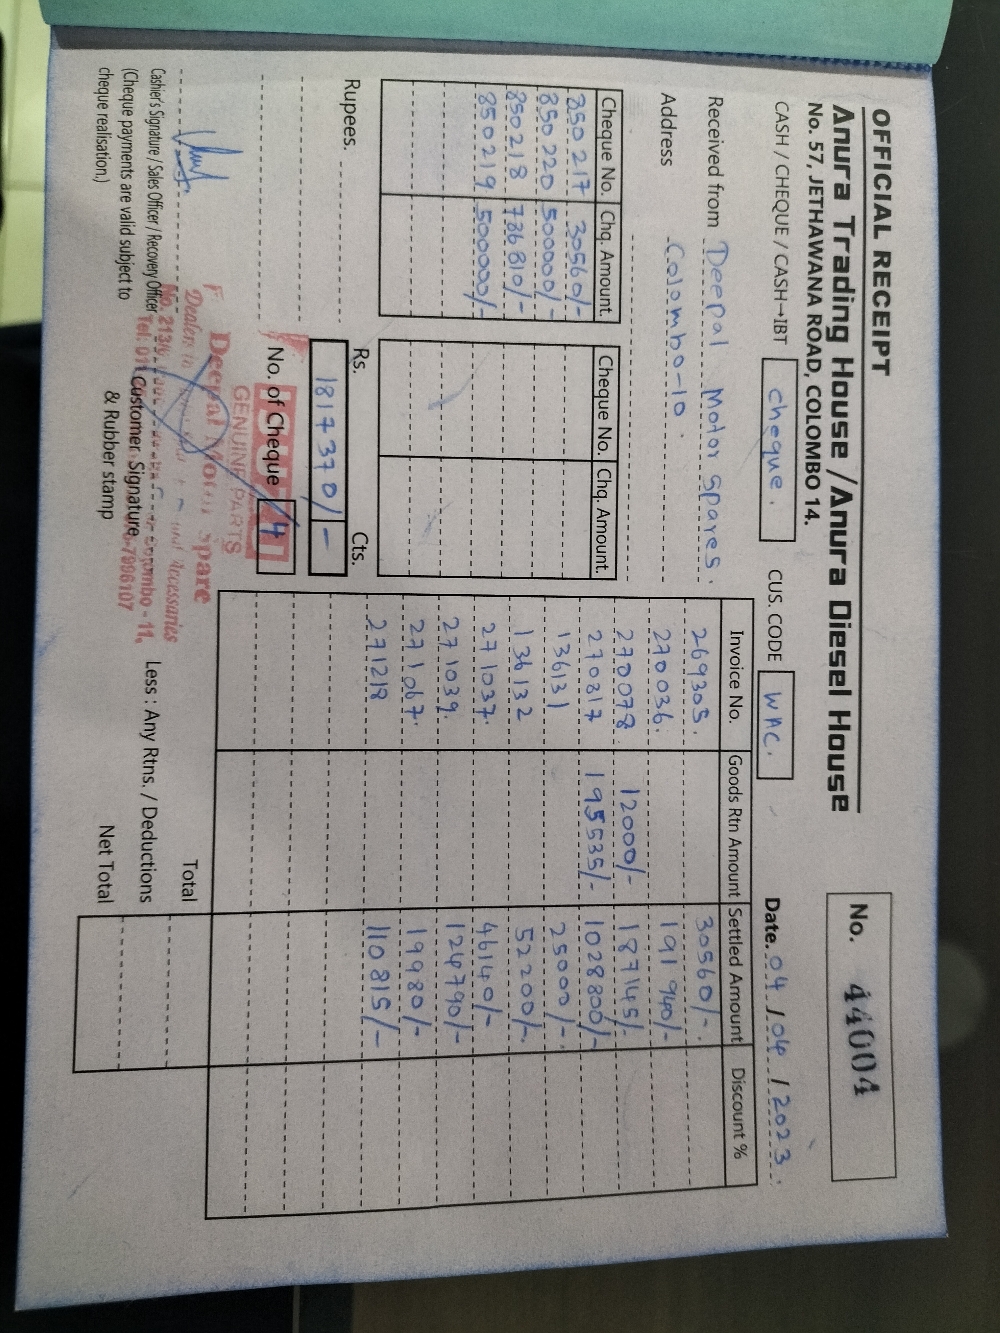 OFFICIAL RECEIPT
Anura Trading House / Anura Diesel House
No. 57, JETHAWANA ROAD, COLOMBO 14.
No. 44004
CASH / CHEQUE / CASH→IBT cheque. CUS. CODE WAC. Date. 04 / 04 / 2023.
Received from Deepal Motor Spares.
Address Colombo-10.
Cheque No. Chq. Amount. Cheque No. Chq. Amount.
850217 30560/-
850220 500000/-
850218 786810/-
850219 500000/-
Rupees. Rs. Cts.
1817370/-
No. of Cheque 4
Invoice No. Goods Rtn Amount Settled Amount Discount %
269305. 30560/-.
270036. 191940/-
270078 12000/- 187145/-
270317 195535/- 1028800/-
136131 25000/-.
136132 52200/-.
271037. 46140/-
271039. 124790/-
271067. 19980/-
271218 110815/-
Total
Less : Any Rtns. / Deductions
Net Total
GENUINE PARTS
Deepal Motor Spare
Dealers in and Accessories
Colombo - 11.
Cashier's Signature / Sales Officer / Recovery Officer
(Cheque payments are valid subject to
cheque realisation.)
Customer Signature
& Rubber stamp